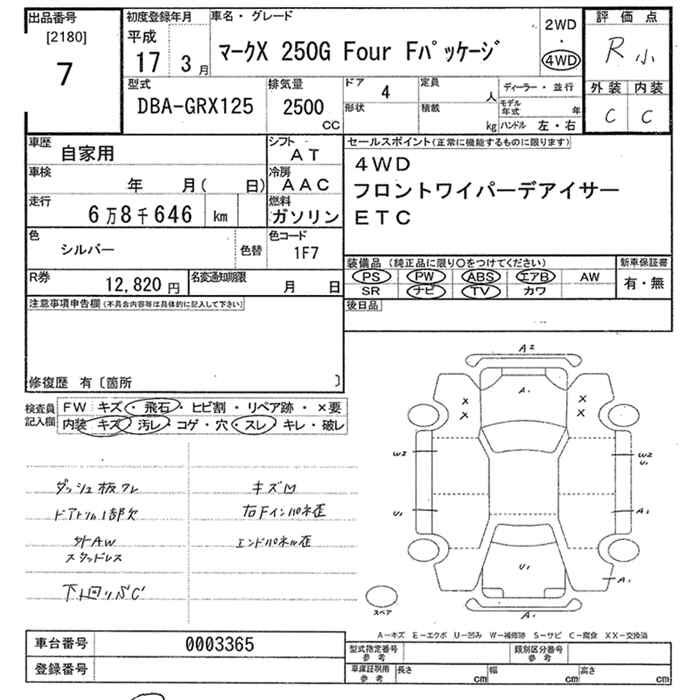 出品番号
[2180]
7
初度登録年月
平成
17 3月
車名・グレード
マークX 250G Four Fパッケージ
2WD
・
4WD
評価点
R 小
外装 内装
C C
型式
DBA-GRX125
排気量
2500
CC
ドア
4
形状
定員
人
積載
kg
ディーラー・並行
モデル年式 年
ハンドル 左・右
車歴
自家用
シフト
AT
車検
年 月( 日)
冷房
AAC
走行
6万8千646 km
燃料
ガソリン
色
シルバー
色替
色コード
1F7
R券
12,820円
名変通知期限
月 日
セールスポイント(正常に機能するものに限ります)
4WD
フロントワイパーデアイサー
ETC
装備品(純正品に限り〇をつけてください)
新車保証書
PS PW ABS エアB AW
SR ナビ TV カワ
有・無
後日品
注意事項申告欄(不具合内容等は具体的に記入して下さい)
修復歴 有〔箇所 〕
検査員記入欄
FW キズ・飛石・ヒビ割・リペア跡・×要
内装 キズ・汚レ・コゲ・穴・スレ・キレ・破レ
ダッシュ板クレ
キズM
ドアトリム1部欠
右Fインパネ歪
外AW
エンドパネル歪
スタッドレス
下回リSC
A2
A1
× ×
× ×
W2 W2
U1
U1 A1
U1
A1
A1
スペア
A-キズ E-エクボ U-凹み W-補修跡 S-サビ C-腐食 XX-交換済
車台番号
0003365
登録番号
型式指定番号
参考
類別区分番号
参考
車庫証明用
参考
長さ cm
幅 cm
高さ cm